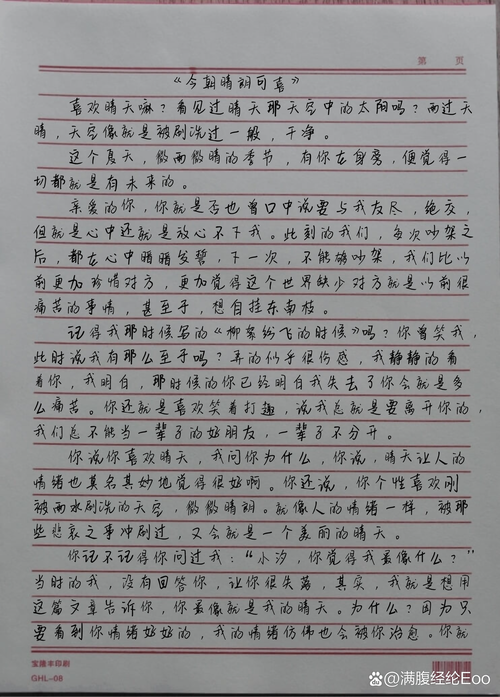 第 页
《今朝晴朗可喜》
喜欢晴天嘛？看见过晴天那天空中的太阳吗？雨过天
晴，天空像就是被刷洗过一般，干净。
这个夏天，微雨微晴的季节，有你在身旁，便觉得一
切都就是有未来的。
亲爱的你，你就是否也曾口中说要与我友尽，绝交，
但就是心中还就是放心不下我。此刻的我们，每次吵架之
后，都在心中暗暗发誓，下一次，不能够吵架，我们比以
前更加珍惜对方，更加觉得这个世界缺少对方就是以前很
痛苦的事情，甚至于，想自挂东南枝。
记得我那时候写的《柳絮纷飞的时候》吗？你曾笑我，
此时说我有那么至于吗？弄的似乎很伤感，我静静的看
着你，我明白，那时候的你已经明白我失去了你会就是多
么痛苦。你还就是喜欢笑着打趣，说我总就是要离开你的，
我们总不能当一辈子的好朋友，一辈子不分开。
你说你喜欢晴天，我问你为什么，你说，晴天让人的
情绪也莫名其妙地觉得很好啊。你还说，你个性喜欢刚
被雨水刷洗的天空，微微晴朗。就像人的情绪一样，被那
些悲哀之事冲刷过，又会就是一个美丽的晴天。
你记不记得你问过我：“小汐，你觉得我最像什么？”
当时的我，没有回答你，让你很失落，其实，我就是想用
这篇文章告诉你，你最像就是我的晴天。为什么？因为只
要看到你情绪好好的，我的情绪仿佛也会被你治愈。你就
宝隆丰印刷
GHL-08
头条 @满腹经纶Eoo